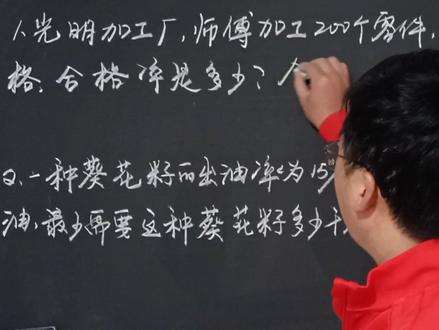 1.光明加工厂,师傅加工200个零件,
格.合格率是多少?
2.一种葵花籽的出油率为15
油,最少需要这种葵花籽多少千